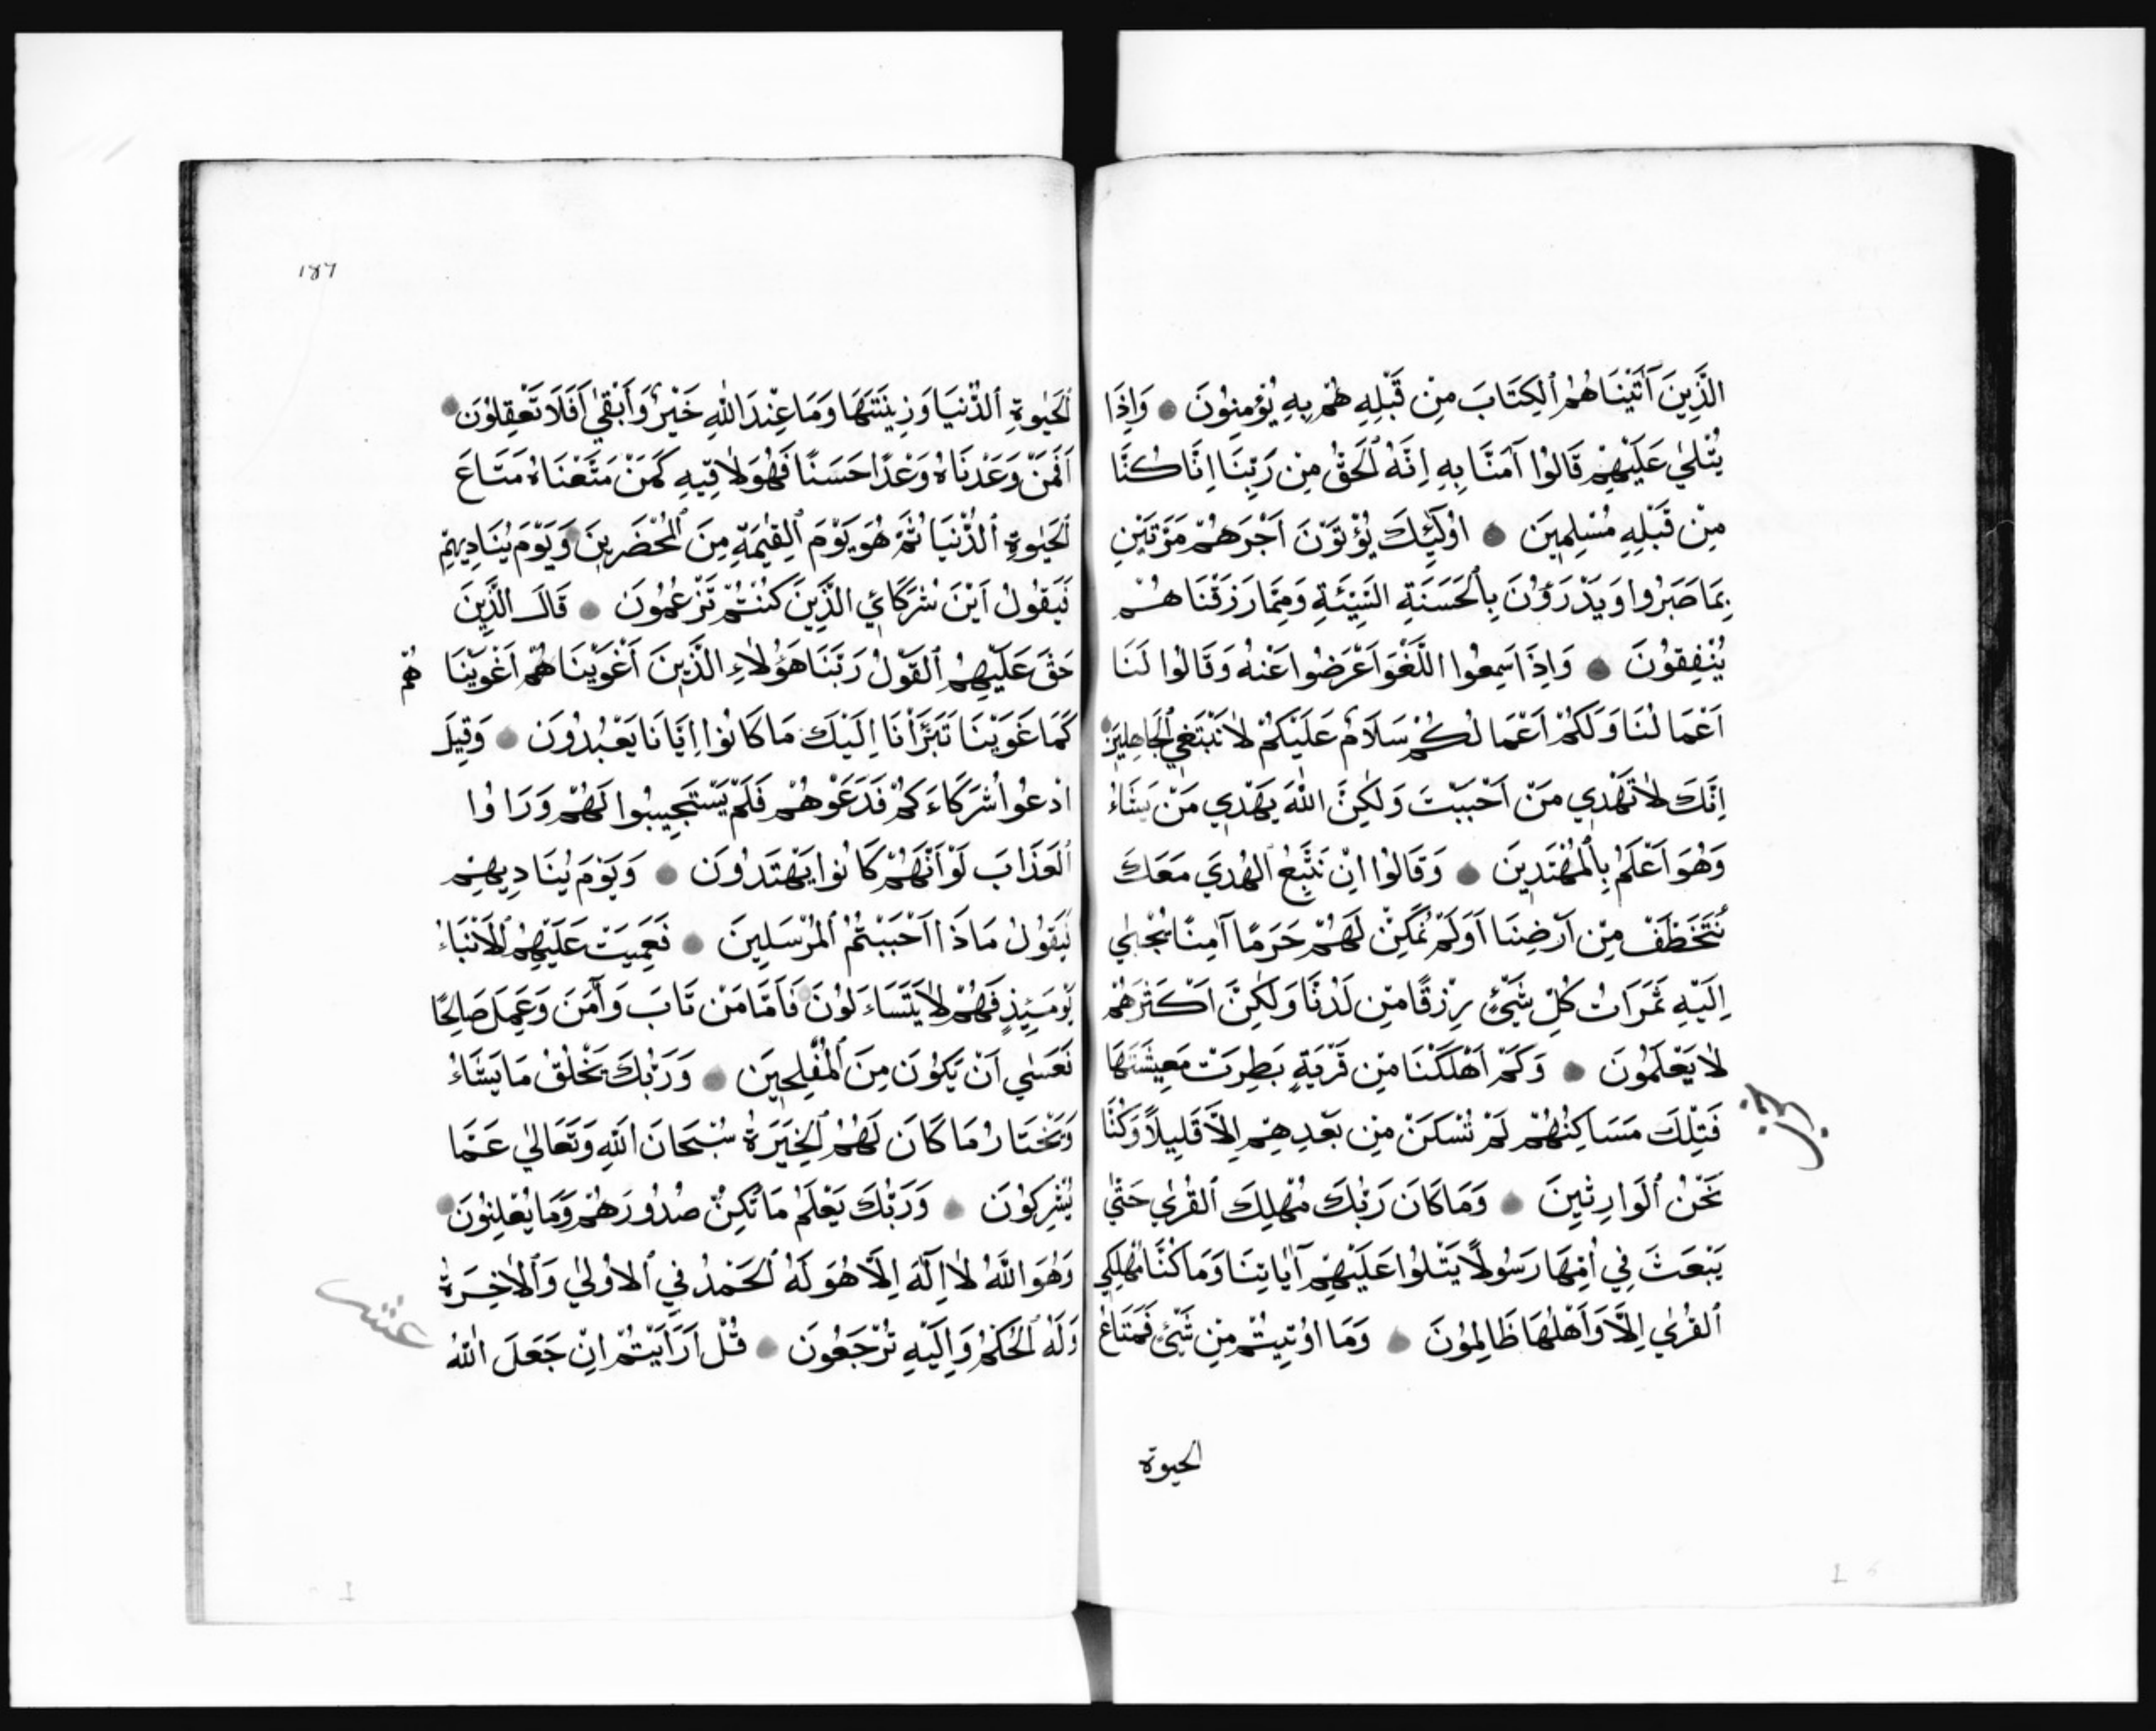 الَّذِينَ آتَيْنَاهُمُ ٱلْكِتَابَ مِنْ قَبْلِهِ هُمْ بِهِ يُؤْمِنُونَ وَإِذَا
يُتْلٰي عَلَيْهِمْ قَالُوا آمَنَّا بِهِ اِنَّهُ ٱلْحَقُّ مِنْ رَبِّنَا اِنَّا كُنَّا
مِنْ قَبْلِهِ مُسْلِمِينَ اُولٰٓئِكَ يُؤْتَوْنَ اَجْرَهُمْ مَرَّتَيْنِ
بِمَا صَبَرُوا وَيَدْرَؤُنَ بِٱلْحَسَنَةِ السَّيِّئَةِ وَمِمَّا رَزَقْنَاهُمْ
يُنْفِقُونَ وَاِذَا سَمِعُوا اللَّغْوَ اَعْرَضُوا عَنْهُ وَقَالُوا لَنَا
اَعْمَالُنَا وَلَكُمْ اَعْمَالُكُمْ سَلَامٌ عَلَيْكُمْ لَا نَبْتَغِي ٱلْجَاهِلِينَ
اِنَّكَ لَا تَهْدِي مَنْ اَحْبَبْتَ وَلٰكِنَّ اللّٰهَ يَهْدِي مَنْ يَشَاءُ
وَهُوَ اَعْلَمُ بِٱلْمُهْتَدِينَ وَقَالُوا اِنْ نَتَّبِعُ ٱلْهُدَيٰ مَعَكَ
نُتَخَطَّفْ مِنْ اَرْضِنَا اَوَلَمْ نُمَكِّنْ لَهُمْ حَرَمًا آمِنًا يُجْبٰي
اِلَيْهِ ثَمَرَاتُ كُلِّ شَيْئٍ رِزْقًا مِنْ لَدُنَّا وَلٰكِنَّ اَكْثَرَهُمْ
لَا يَعْلَمُونَ وَكَمْ اَهْلَكْنَا مِنْ قَرْيَةٍ بَطِرَتْ مَعِيشَتَهَا
فَتِلْكَ مَسَاكِنُهُمْ لَمْ تُسْكَنْ مِنْ بَعْدِهِمْ اِلَّا قَلِيلًا وَكُنَّا
نَحْنُ ٱلْوَارِثِينَ وَمَا كَانَ رَبُّكَ مُهْلِكَ ٱلْقُرٰي حَتّٰي
يَبْعَثَ فِي اُمِّهَا رَسُولًا يَتْلُوا عَلَيْهِمْ آيَاتِنَا وَمَا كُنَّا مُهْلِكِي
ٱلْقُرٰي اِلَّا وَاَهْلُهَا ظَالِمُونَ وَمَا اُوتِيتُمْ مِنْ شَيْئٍ فَمَتَاعُ
الحيوة
١٨٦
ٱلْحَيٰوةِ ٱلدُّنْيَا وَزِينَتُهَا وَمَا عِنْدَ اللّٰهِ خَيْرٌ وَأَبْقٰي اَفَلَا تَعْقِلُونَ
اَفَمَنْ وَعَدْنَاهُ وَعْدًا حَسَنًا فَهُوَ لَاقِيهِ كَمَنْ مَتَّعْنَاهُ مَتَاعَ
ٱلْحَيٰوةِ ٱلدُّنْيَا ثُمَّ هُوَ يَوْمَ ٱلْقِيٰمَةِ مِنَ ٱلْمُحْضَرِينَ وَيَوْمَ يُنَادِيهِمْ
فَيَقُولُ اَيْنَ شُرَكَائِي الَّذِينَ كُنْتُمْ تَزْعُمُونَ قَالَ الَّذِينَ
حَقَّ عَلَيْهِمُ ٱلْقَوْلُ رَبَّنَا هَؤُلَاءِ الَّذِينَ اَغْوَيْنَا هُمْ اَغْوَيْنَا هُمْ
كَمَا غَوَيْنَا تَبَرَّأْنَا اِلَيْكَ مَا كَانُوا اِيَّانَا يَعْبُدُونَ وَقِيلَ
ادْعُوا شُرَكَاءَكُمْ فَدَعَوْهُمْ فَلَمْ يَسْتَجِيبُوا لَهُمْ وَرَاَوُا
ٱلْعَذَابَ لَوْ اَنَّهُمْ كَانُوا يَهْتَدُونَ وَيَوْمَ يُنَادِيهِمْ
فَيَقُولُ مَاذَا اَحْبَبْتُمُ ٱلْمُرْسَلِينَ فَعَمِيَتْ عَلَيْهِمُ ٱلْاَنْبَاءُ
يَوْمَئِذٍ فَهُمْ لَا يَتَسَاءَلُونَ فَاَمَّا مَنْ تَابَ وَآمَنَ وَعَمِلَ صَالِحًا
فَعَسٰي اَنْ يَكُونَ مِنَ ٱلْمُفْلِحِينَ وَرَبُّكَ يَخْلُقُ مَا يَشَاءُ
وَيَخْتَارُ مَا كَانَ لَهُمُ ٱلْخِيَرَةُ سُبْحَانَ اللّٰهِ وَتَعَالٰي عَمَّا
يُشْرِكُونَ وَرَبُّكَ يَعْلَمُ مَا تُكِنُّ صُدُورُهُمْ وَمَا يُعْلِنُونَ
وَهُوَ اللّٰهُ لَا اِلٰهَ اِلَّا هُوَ لَهُ ٱلْحَمْدُ فِي ٱلْاُولٰي وَٱلْاٰخِرَةِ
وَلَهُ ٱلْحُكْمُ وَاِلَيْهِ تُرْجَعُونَ قُلْ اَرَاَيْتُمْ اِنْ جَعَلَ اللّٰهُ
عشر